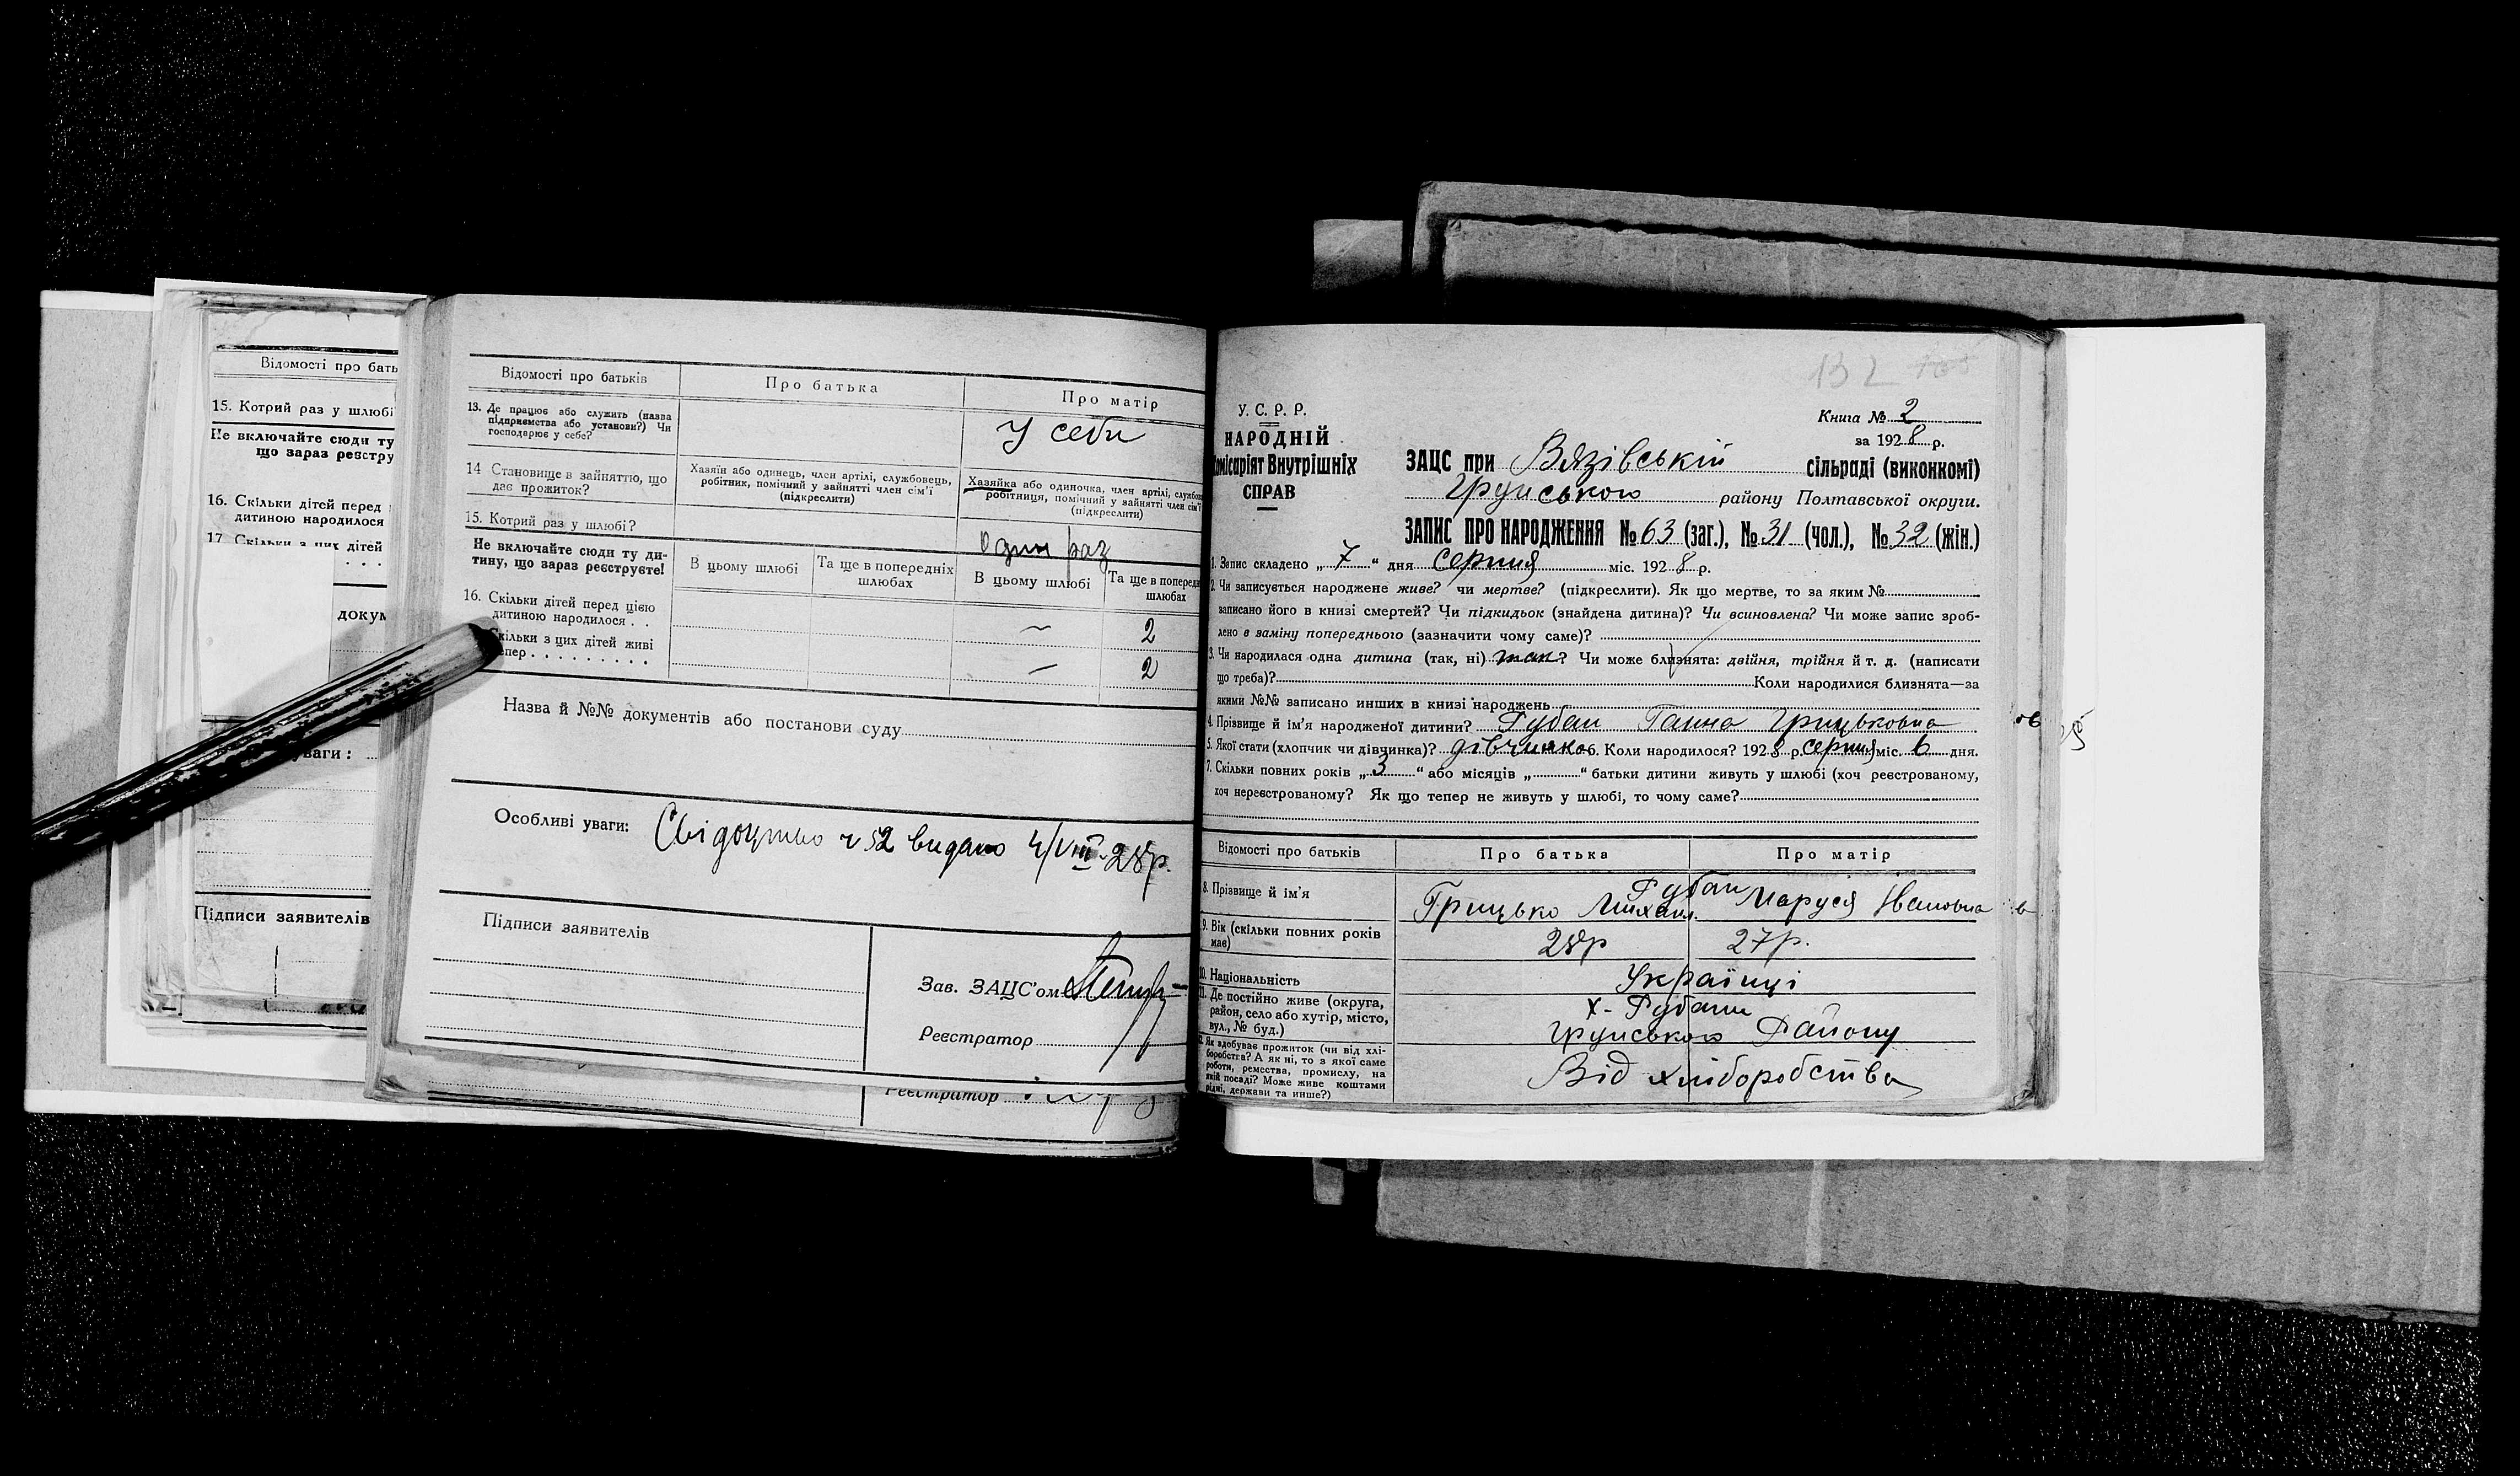 Відомості про бать
15. Котрий раз у шлюбі
Не включайте сюди ту
що зараз реєстру
16. Скільки дітей перед
дитиною народилося
17. Скільки з цих дітей
докум
уваги:
Підписи заявителів
Відомості про батьків
Про батька
Про матір
13. Де працює або служить (назва
підприємства або установи?) Чи
господарює у себе?
У себи
14 Становище в зайняттю, що
дає прожиток?
Хазяїн або одинець, член артілі, службовець,
робітник, помічний у зайнятті член сім'ї
(підкреслити)
Хазяйка або одиночка, член артілі, службов
робітниця, помічний у зайнятті член сім'ї
(підкреслити)
15. Котрий раз у шлюбі?
один раз
Не включайте сюди ту ди-
тину, що зараз реєструєте!
В цьому шлюбі
Та ще в попередніх
шлюбах
В цьому шлюбі
Та ще в поперед
шлюбах
16. Скільки дітей перед цією
дитиною народилося . .
— 2
Скільки з цих дітей живі
тепер . . . . . . . . .
— 2
Назва й №№ документів або постанови суду
Особливі уваги: Свідоцтво ч 52 видано 4/VIII-28р.
Підписи заявителів
Зав. ЗАЦС'ом
Реєстратор
Реєстратор
132
У. С. Р. Р.
НАРОДНІЙ
Комісаріят Внутрішніх
СПРАВ
Книга № 2
за 1928 р.
ЗАЦС при Вязівській сільраді (виконкомі)
Грунського району Полтавської округи.
ЗАПИС ПРО НАРОДЖЕННЯ № 63 (заг.), № 31 (чол.), № 32 (жін.)
1. Запис складено „ 7 “ дня серпня міс. 1928 р.
2. Чи записується народжене живе? чи мертве? (підкреслити). Як що мертве, то за яким №
записано його в книзі смертей? Чи підкидьок (знайдена дитина)? Чи всиновлена? Чи може запис зроб-
лено в заміну попереднього (зазначити чому саме)?
3. Чи народилася одна дитина (так, ні) так? Чи може близнята: двійня, трійня й т. д. (написати
що треба)? Коли народилися близнята—за
якими №№ записано инших в книзі народжень
4. Прізвище й ім'я народженої дитини? Рубан Ганна Грицьковна
5. Якої стати (хлопчик чи дівчинка)? дівчинка 6. Коли народилося? 1928 р. серпня міс. 6 дня.
7. Скільки повних років „ 3 “ або місяців „ “ батьки дитини живуть у шлюбі (хоч реєстрованому,
хоч нереєстрованому? Як що тепер не живуть у шлюбі, то чому саме?
Відомості про батьків
Про батька
Про матір
8. Прізвище й ім'я
Рубан
Грицько Михаил. Маруся Ивановна
9. Вік (скільки повних років
має)
28р 27р.
10. Національність
Українці
11. Де постійно живе (округа,
район, село або хутір, місто,
вул., № буд.)
х. Рубани
Грунського Району
12. Як здобуває прожиток (чи від хлі-
боробства? А як ні, то з якої саме
роботи, ремества, промислу, на
якій посаді? Може живе коштами
рідні, держави та инше?)
Від хліборобства